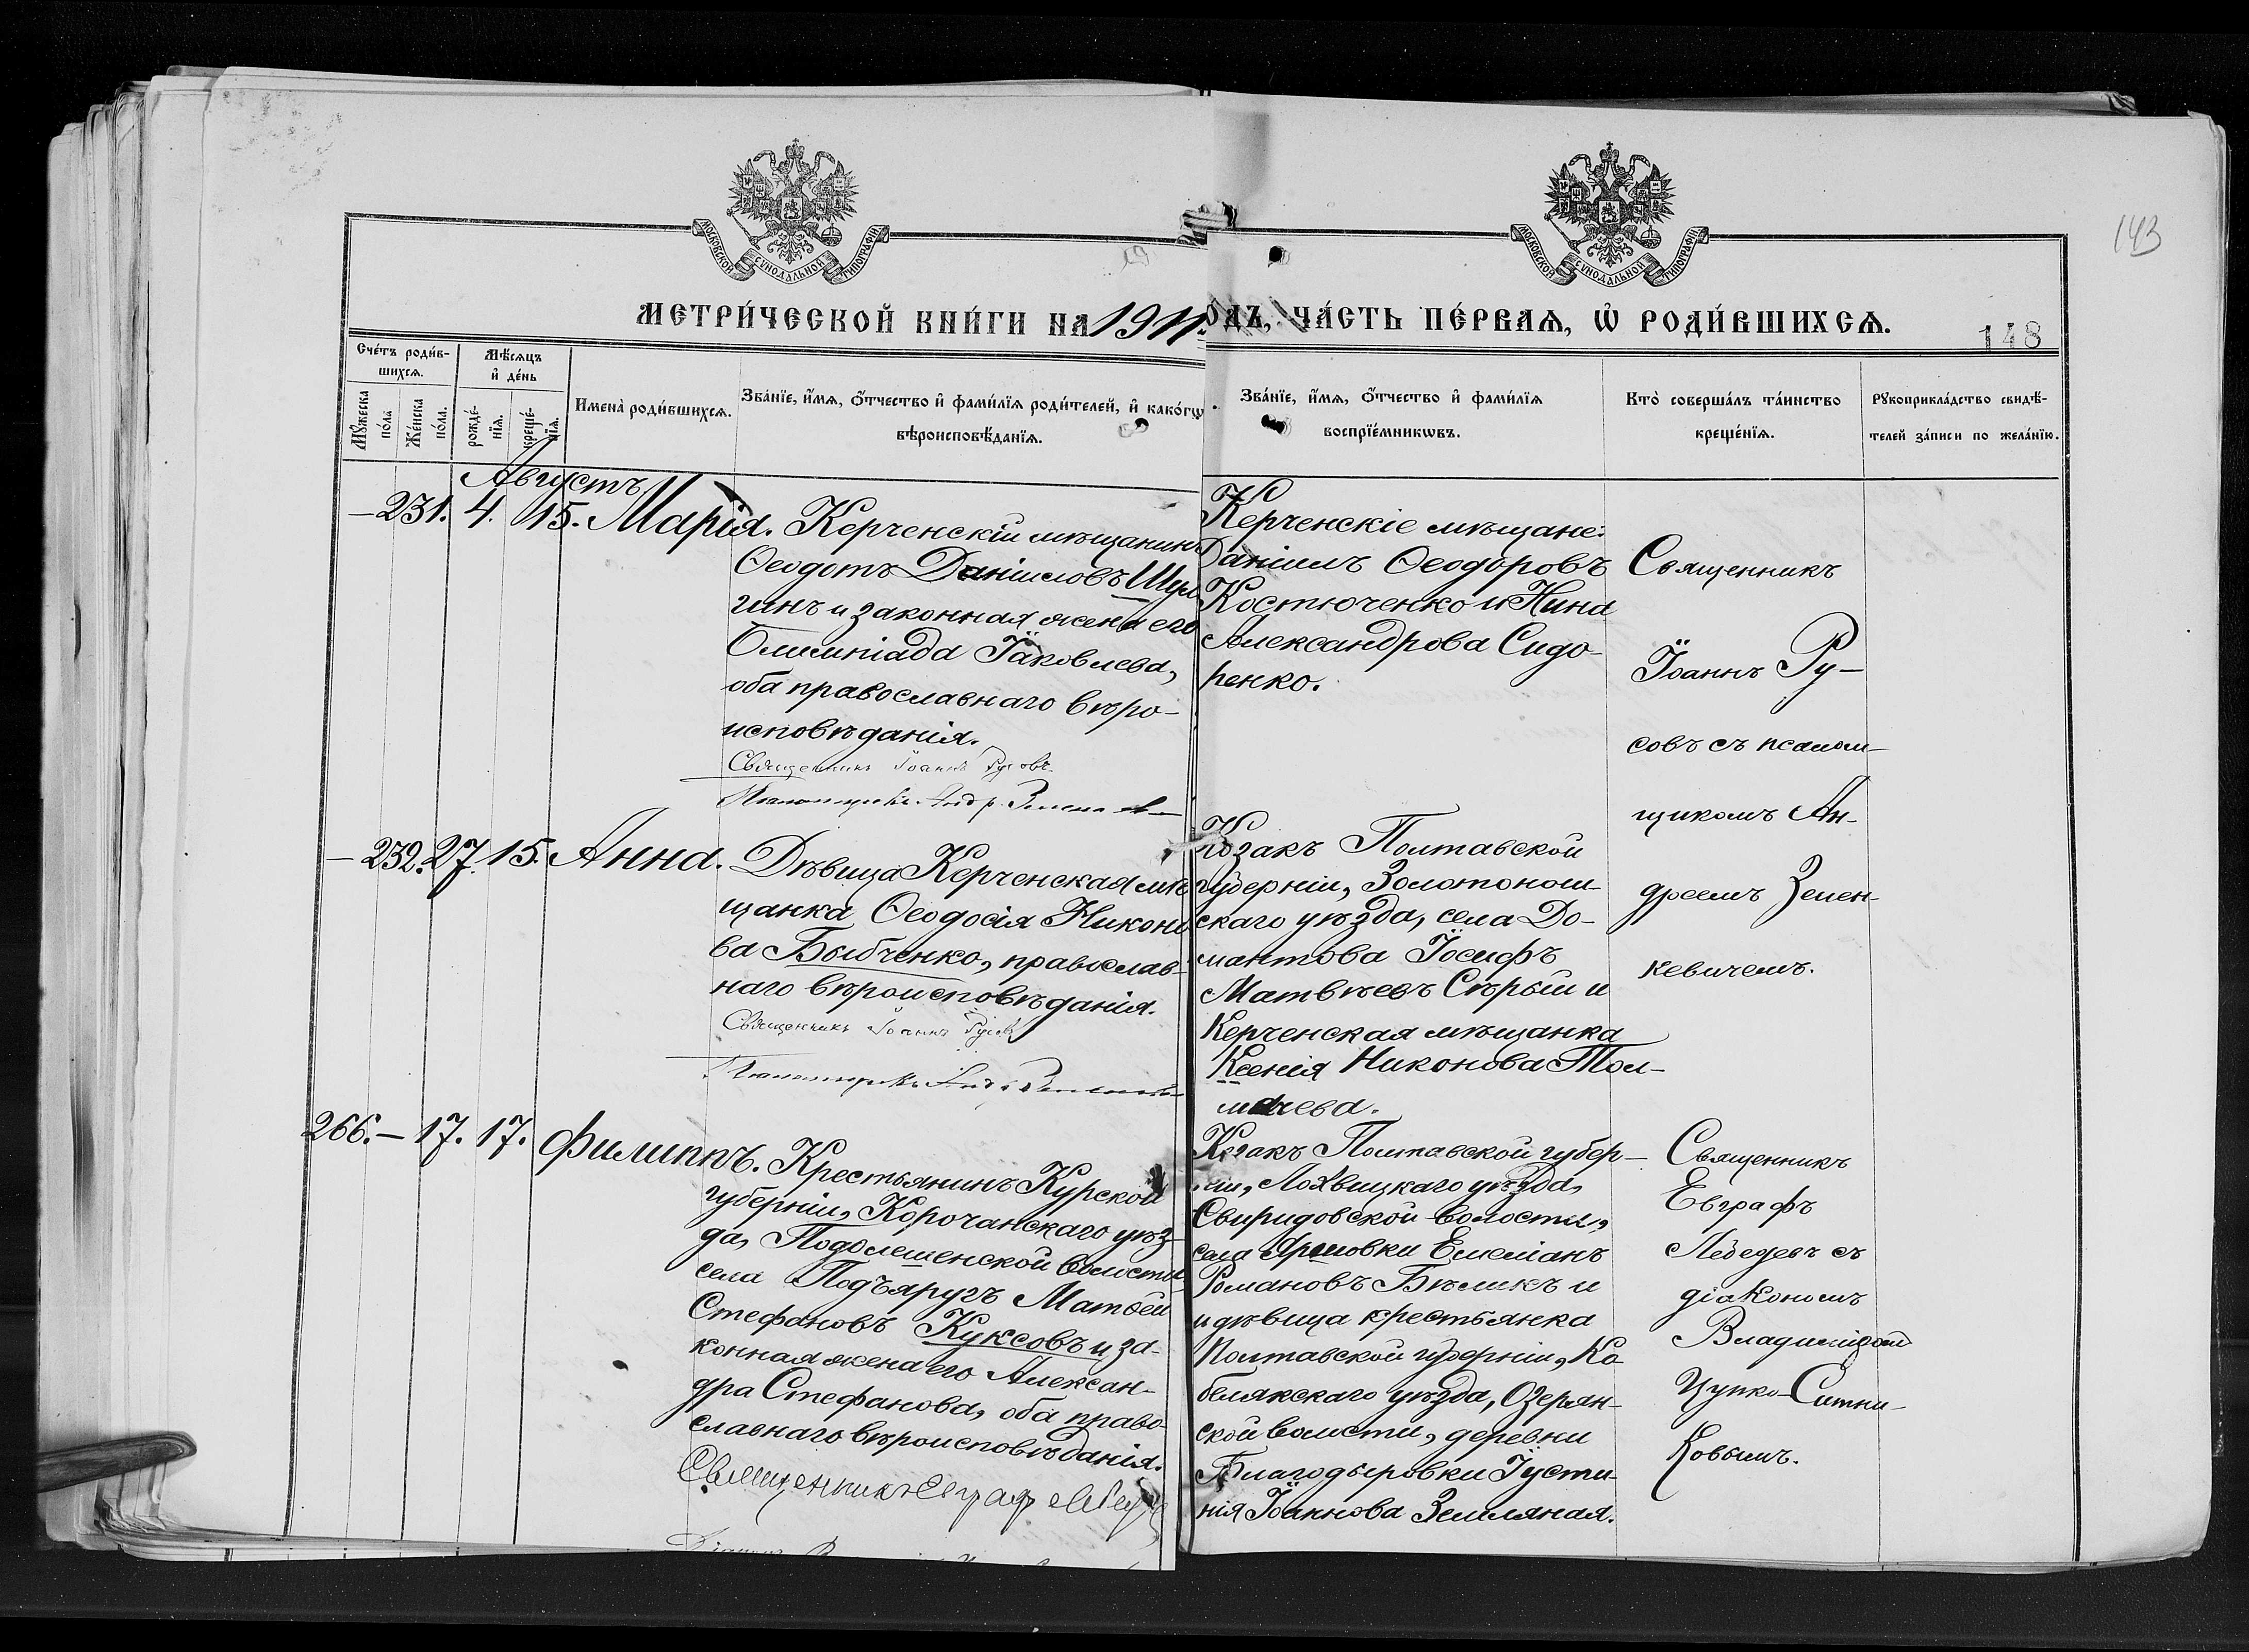 143
МОСКОВСКОЙ СУНОДАЛЬНОЙ ТИПОГРАФІИ
МОСКОВСКОЙ СУНОДАЛЬНОЙ ТИПОГРАФІИ
МЕТРИ́ЧЕСКОЙ КНИ́ГИ НА 1911 ОДЪ, ЧА́СТЬ ПЕ́РВАѦ, Ѡ҆ РОДИ́ВШИХСѦ.
148
Сче́тъ роди́в-
шихсѧ.
Мѣ́сѧцъ
и҆ де́нь
Мꙋ́жеска
по́ла
Же́нска
по́ла.
рожде́-
нїѧ.
креще́-
нїѧ.
Имена̀ роди́вшихсѧ.
Зва́нїе, и҆́мѧ, ѻ҆́тчество и҆ фами́лїѧ роди́телей, и҆ како́гѡ
вѣроисповѣ́данїѧ.
Зва́нїе, и҆́мѧ, ѻ҆́тчество и҆ фами́лїѧ
воспрїе́мникѡвъ.
Кто̀ соверша́лъ та́инство
креще́нїѧ.
Рꙋкоприкла́дство свидѣ́-
телей за́писи по жела́нїю.
Августъ
– 231. 4. 15. Марія. Керченскій мѣщанинъ
Ѳеодотъ Даніиловъ Шул
гинъ и законная жена его
Олимпіада Іаковлева,
оба православнаго вѣро-
исповѣданія.
Священникъ Іоаннъ Русовъ
Псаломщикъ Андр.
Керченскіе мѣщане:
Даніилъ Ѳеодоровъ
Костюченко и Нина
Александрова Сидо-
ренко.
Священникъ
Іоаннъ Ру-
совъ съ псалом-
щикомъ Ан-
дреемъ Зенен-
кевичемъ.
– 232. 27. 15. Анна. Дѣвица Керченская мѣ
щанка Ѳеодосія Никоно
ва Быбченко, православ-
наго вѣроисповѣданія.
Священникъ Іоаннъ Русовъ
Псаломщикъ
Козакъ Полтавской
губерніи, Золотонош-
скаго уѣзда, села До-
мантова Іосифъ
Матвѣевъ Сѣрый и
Керченская мѣщанка
Ксенія Никонова Тол-
мачева.
266. – 17. 17. Филиппъ. Крестьянинъ Курской
губерніи, Корочанскаго уѣз-
да, Подолешенской волости
села Подъяругъ Матѳей
Стефановъ Куксовъ и за-
конная жена его Алексан-
дра Стефанова, оба право-
славнаго вѣроисповѣданія.
Священникъ Евграфъ Лебедевъ
Козакъ Полтавской губер-
ніи, Лохвицкаго уѣзда,
Свиридовской волости,
села Яршовки Емеліанъ
Романовъ Бѣликъ и
и дѣвица крестьянка
Полтавской губерніи, Ко-
белякскаго уѣзда, Озерян-
ской волости, деревни
Благодыровки Іусти-
нія Іоаннова Земляная.
Священникъ
Евграфъ
Лебедевъ съ
діакономъ
Владиміромъ
Цупко-Ситни-
ковымъ.